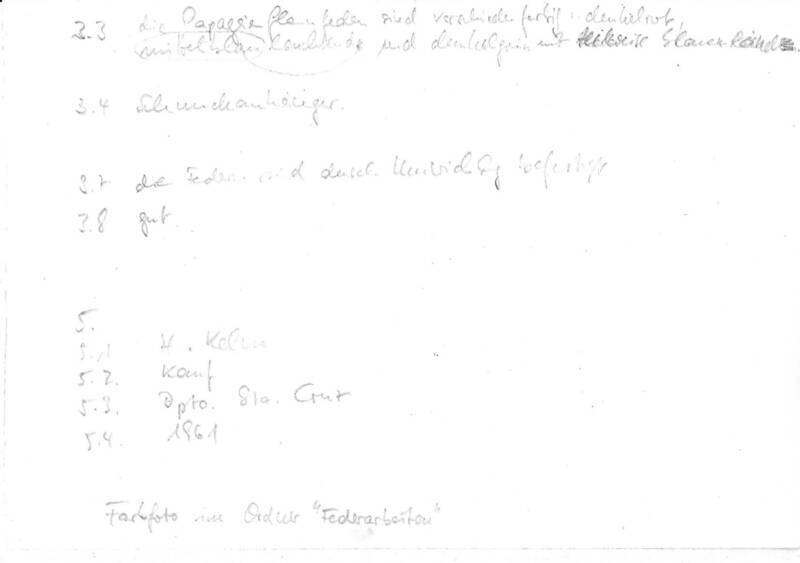 3.3 die Papageienflaumfedern sind verschiedenfarbig: dunkelrot,
mittelblau leuchtend und dunkelgrün mit teilweise blauen
3.4 Schmuckanhänger.
3.7 die Federn sind durch Umwicklg befestigt
3.8 gut
5.
5.1 H. Kelm
5.2. Kauf
5.3. Dpto. Sta. Cruz
5.4. 1961
Farbfoto im Ordner "Federarbeiten"